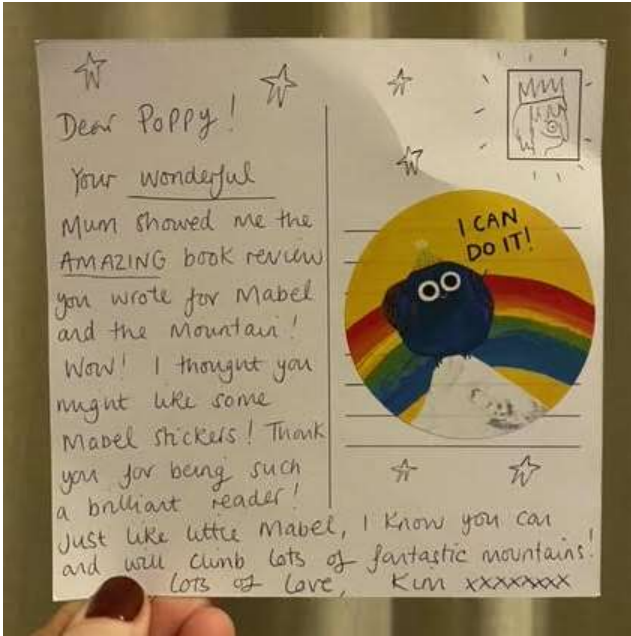 Dear Poppy!
Your wonderful
Mum showed me the
AMAZING book review
you wrote for Mabel
and the Mountain!
Wow! I thought you
might like some
Mabel stickers! Thank
you for being such
a brilliant reader!
Just like little Mabel, I know you can
and will climb lots of fantastic mountains!
Lots of Love, Kim xxxxxxxx
I CAN
DO IT!